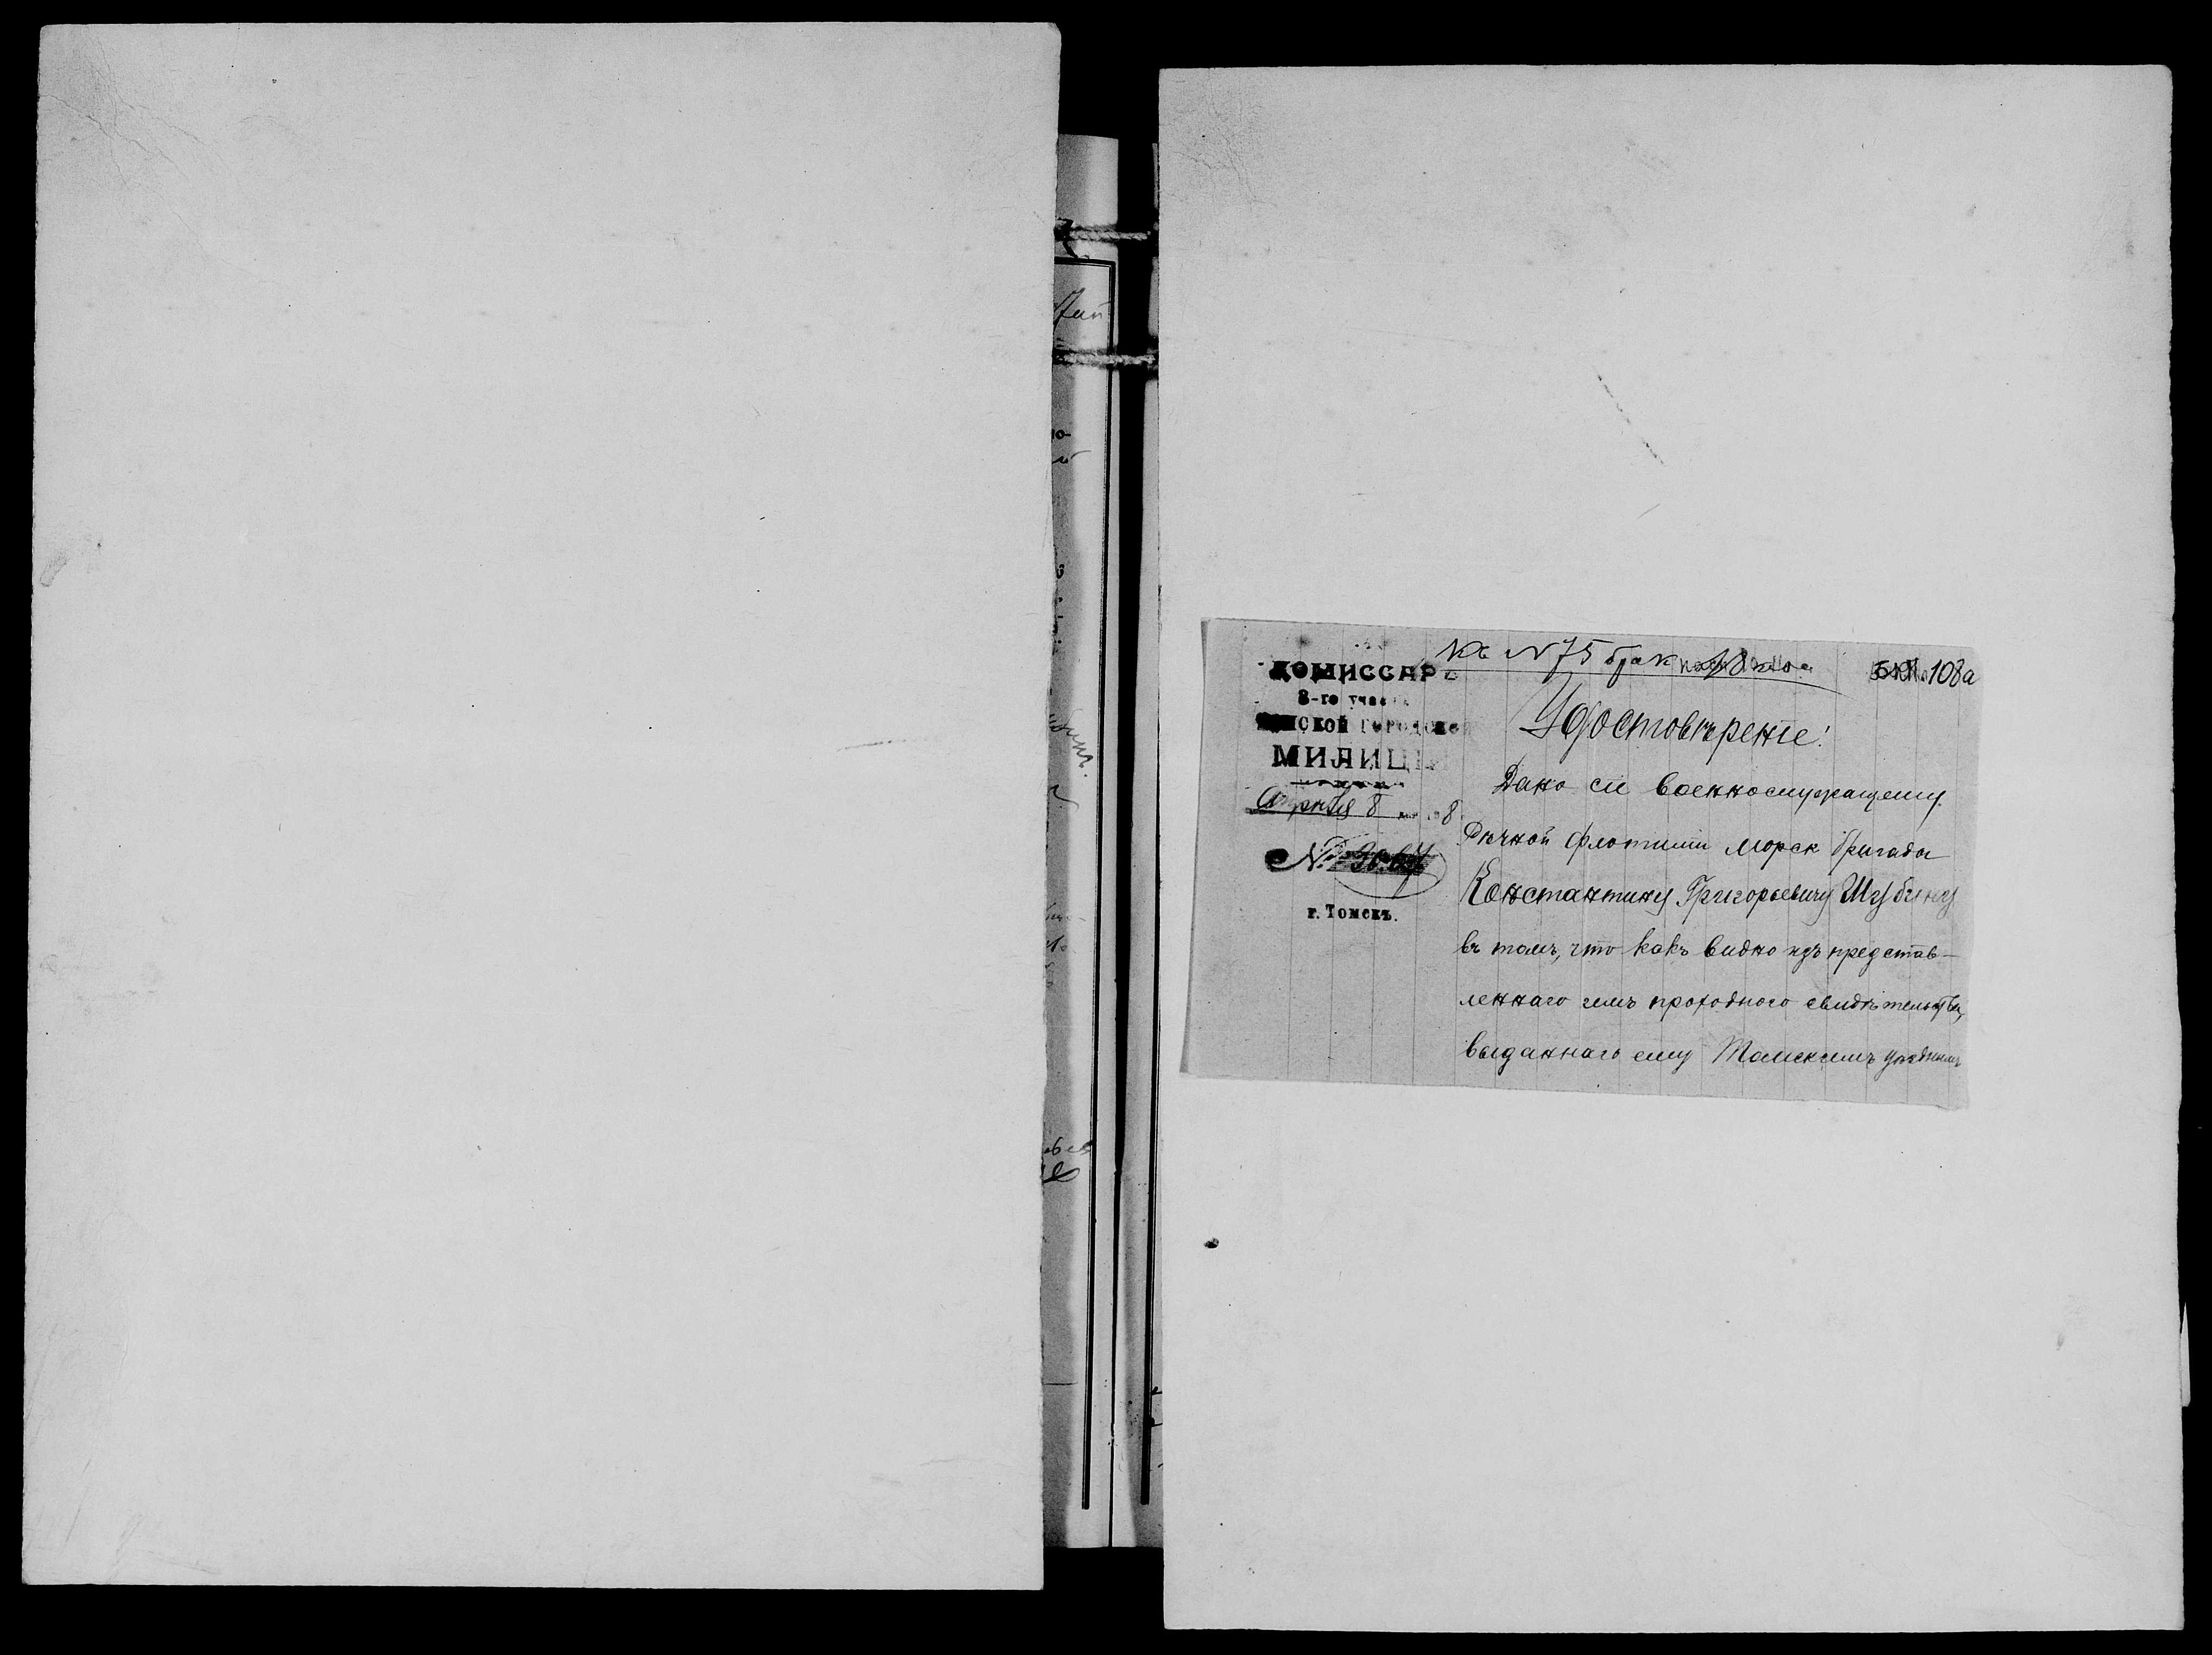 Къ №75 брак
108а
КОМИССАРЪ
3-го учас
МСКОЙ ГОРОДСКО
МИЛИЦІ
Апрѣля 8 8
№
г. Томскъ.
Удостовѣреніе.
Дано сіе военнослужащему
Рѣчной флотиліи Морск бригады
Константину Григорьевичу Шубину
въ томъ, что какъ видно изъ представ-
леннаго имъ проходного свидѣтельства,
выданнаго ему Томскимъ уѣзднымъ